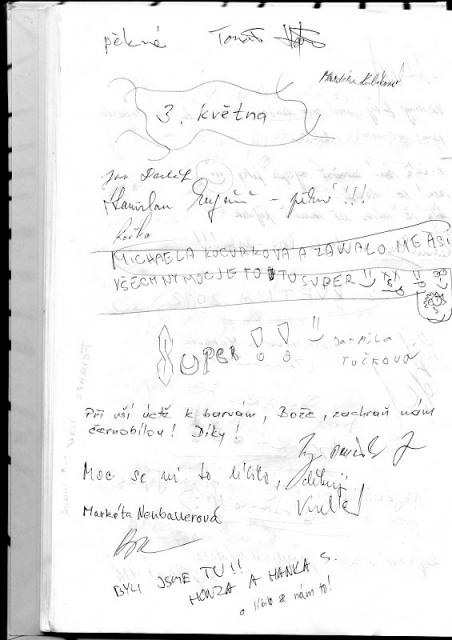 pěkné Tomáš
3. května
Jan
Stanislav – pěkné !!!
MICHAELA KOCURKOVA A ZAVALO ME ASI
VŠECHNY MOC JE TO TU SUPER
SUPER !! JARMILA
TUČKOVÁ
Při vší úctě k barvám, Bože, zachraň nám
černobílou! Díky!
Moc se mi to líbilo, děkuji
Markéta Neubauerová
BYLI JSME TU!!
HONZA A HANKA S.
a líbilo se nám to!